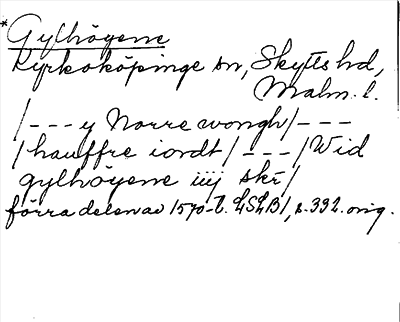 *Gylhöyene
Kyrkoköpinge sn, Skytts hd,
Malm. l.
/--- y Norre wongh/---
/hauffre iordt/---/Wid
gylhöyene iiij skr/
förra delen av 1570-t. LSLB1, s. 332. orig.